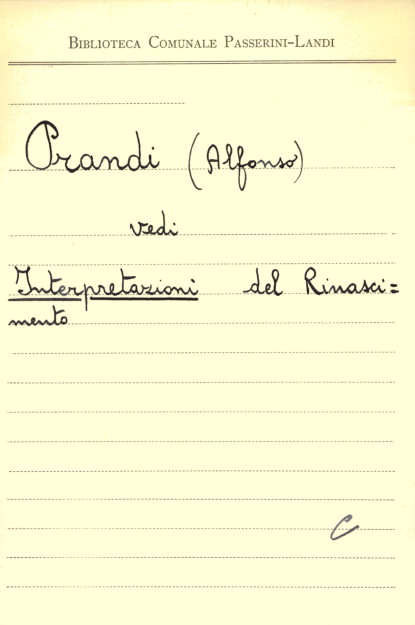 Biblioteca Comunale Passerini-Landi
Prandi (Alfonso)
vedi
Interpretazioni del Rinasci=
mento
C